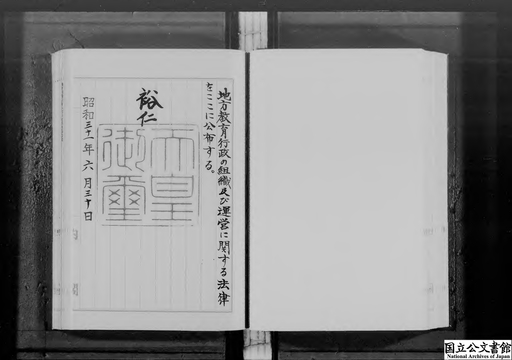 地方教育行政の組織及び運営に関する法律
をここに公布する。
裕仁
天皇
御璽
昭和三十一年六月三十日
国立公文書館
National Archives of Japan